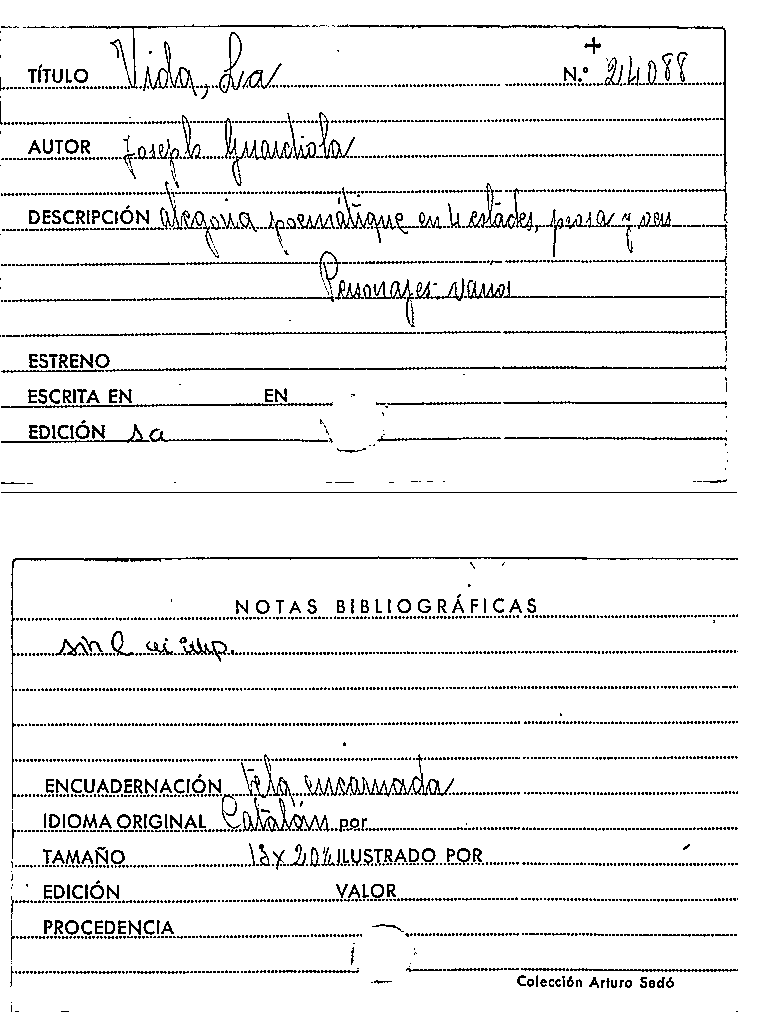 +
TÍTULO Vida, La N.º 24088
AUTOR Joseph Guardiola
DESCRIPCIÓN alegoria poemátique en 4 estades, prosa y vers
Personajes varios
ESTRENO
ESCRITA EN EN
EDICIÓN sa
NOTAS BIBLIOGRÁFICAS
sin l ni imp.
ENCUADERNACIÓN Tela encarnada
IDIOMA ORIGINAL Catalán por
TAMAÑO 13 x 20 ILUSTRADO POR
EDICIÓN VALOR
PROCEDENCIA
Colección Arturo Sedó